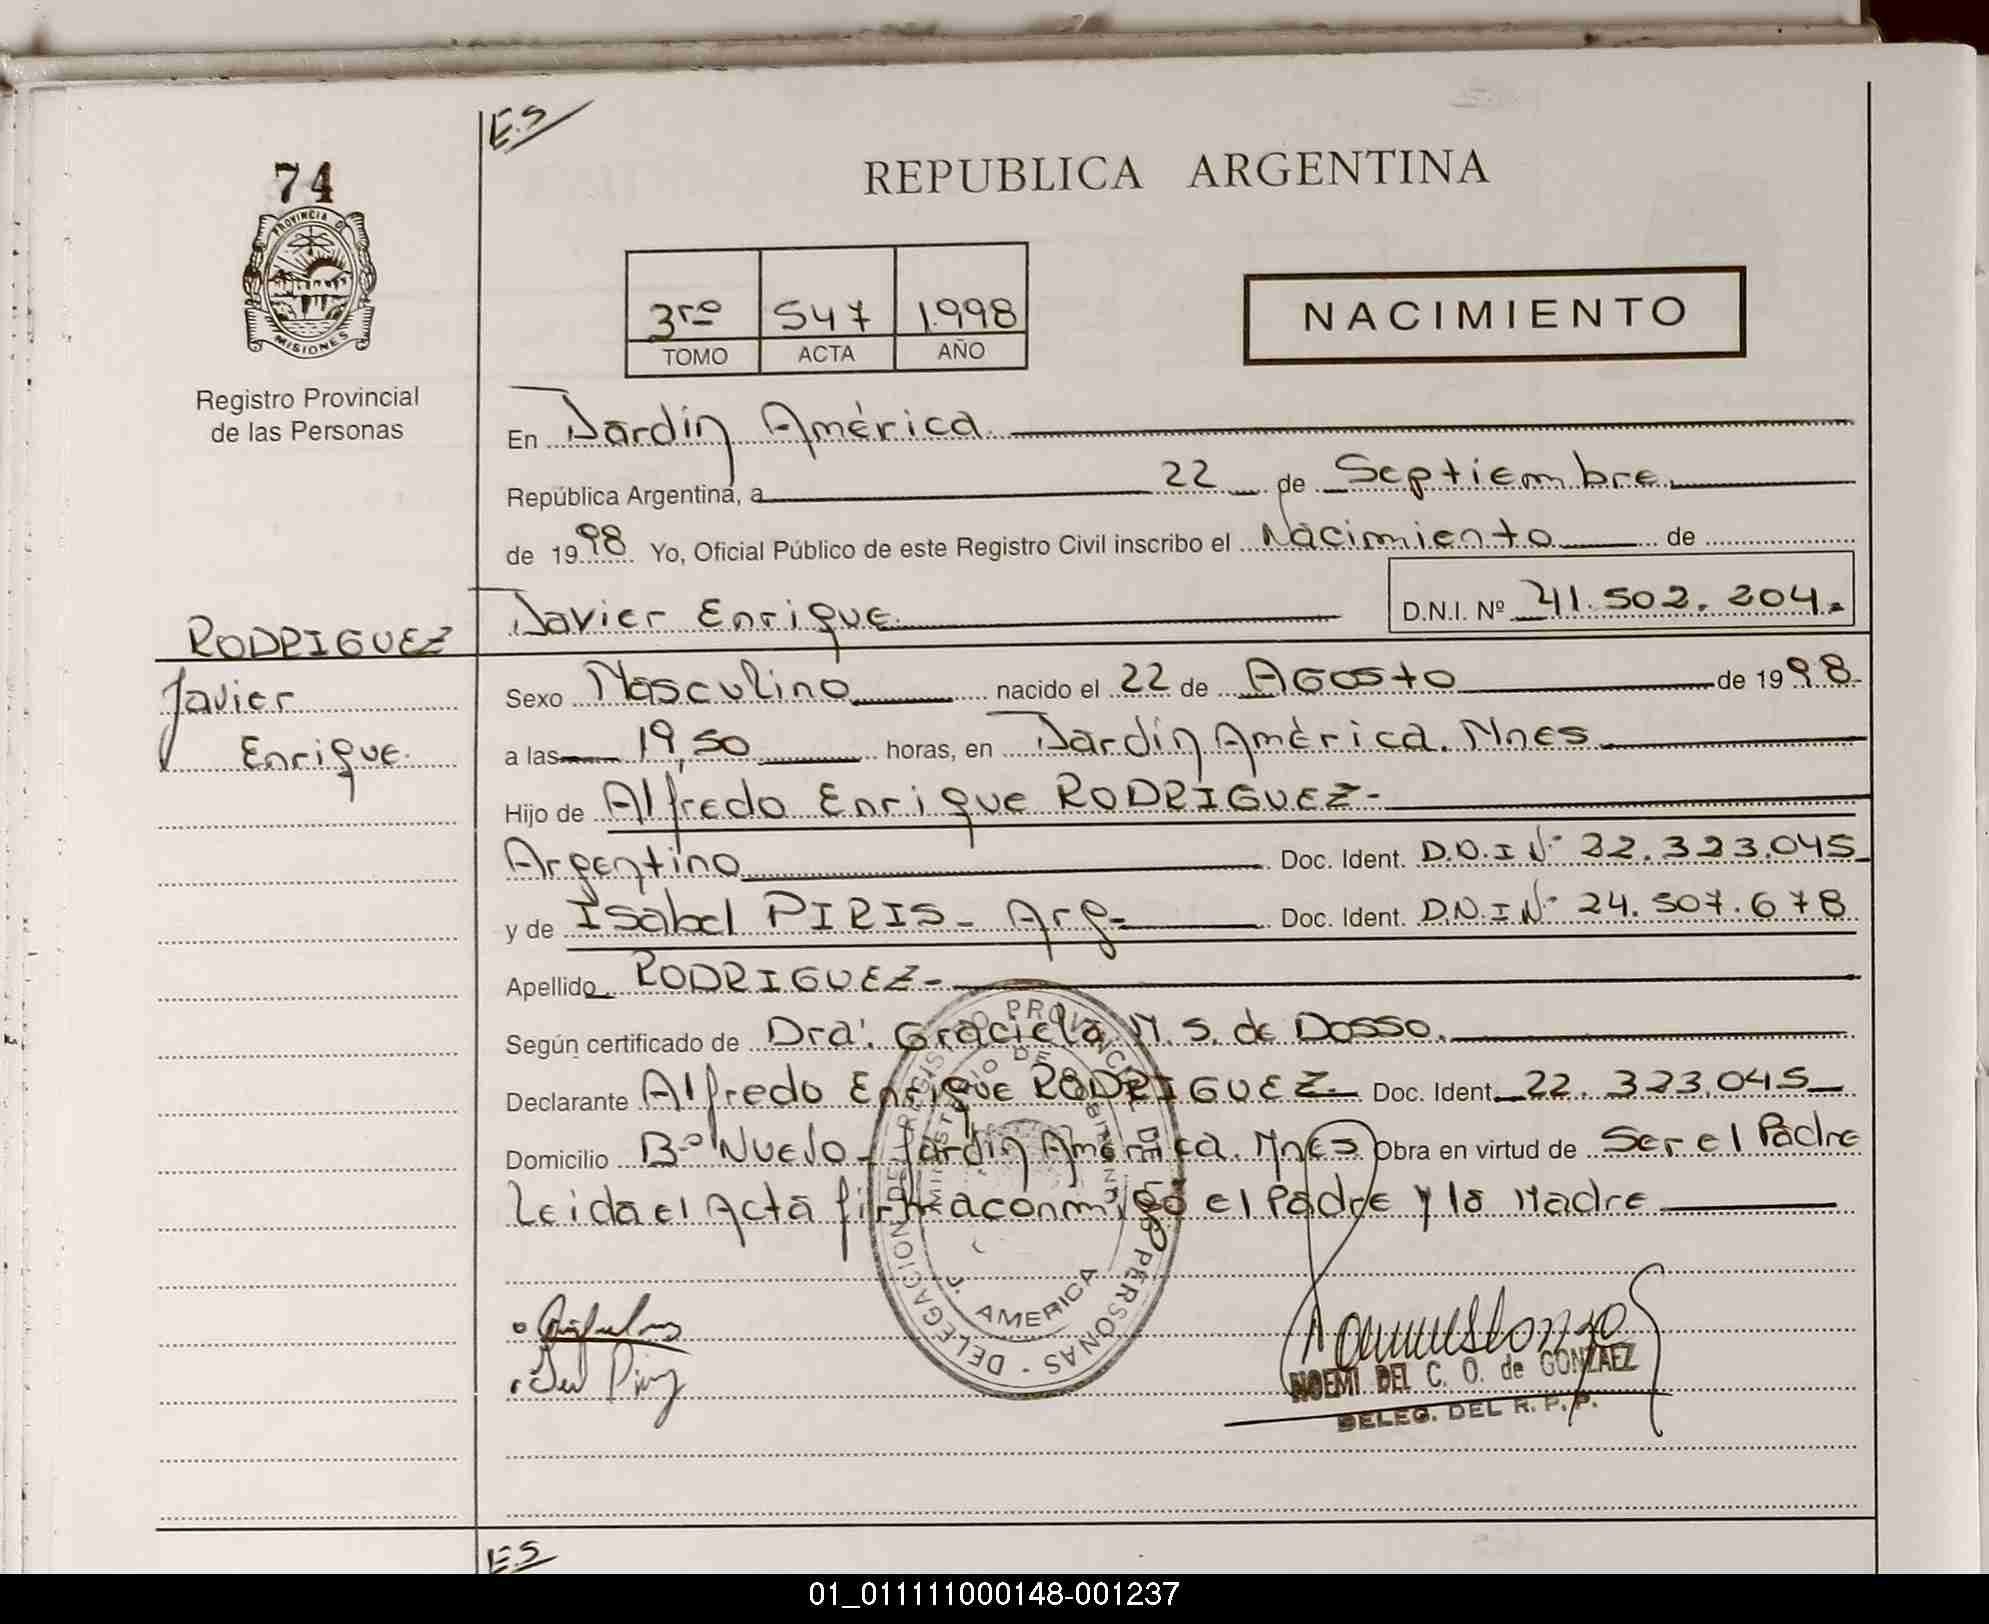 E.S
74
REPUBLICA ARGENTINA
PROVINCIA DE
MISIONES
3ro 547 1.998
TOMO ACTA AÑO
NACIMIENTO
Registro Provincial
de las Personas
En Jardín América
República Argentina, a 22 de Septiembre
de 1998 Yo, Oficial Público de este Registro Civil inscribo el Nacimiento de
Javier Enrique D.N.I. Nº 41.502.204.
RODRIGUEZ
Javier
Enrique.
Sexo Masculino nacido el 22 de Agosto de 1998
a las 19,50 horas, en Jardín América. Mnes
Hijo de Alfredo Enrique RODRIGUEZ-
Argentino Doc. Ident. D.N.I Nº 22.323.045
y de Isabel PIRIS- Arg- Doc. Ident. D.N.I Nº 24.507.678
Apellido RODRIGUEZ-
Según certificado de Dra. Graciela M. S. de Dosso.
Declarante Alfredo Enrique RODRIGUEZ- Doc. Ident. 22.323.045
Domicilio Bº Nuevo- Jardín América. Mnes Obra en virtud de Ser el Padre
Leida el Acta firma conmigo el Padre y la Madre
DELEGACION DEL REGISTRO PROVINCIAL DE LAS PERSONAS
MINISTERIO DE
J. AMERICA
NOEMI DEL C. O. de GONZAEZ
DELEG. DEL R. P. P.
E.S
01_011111000148-001237